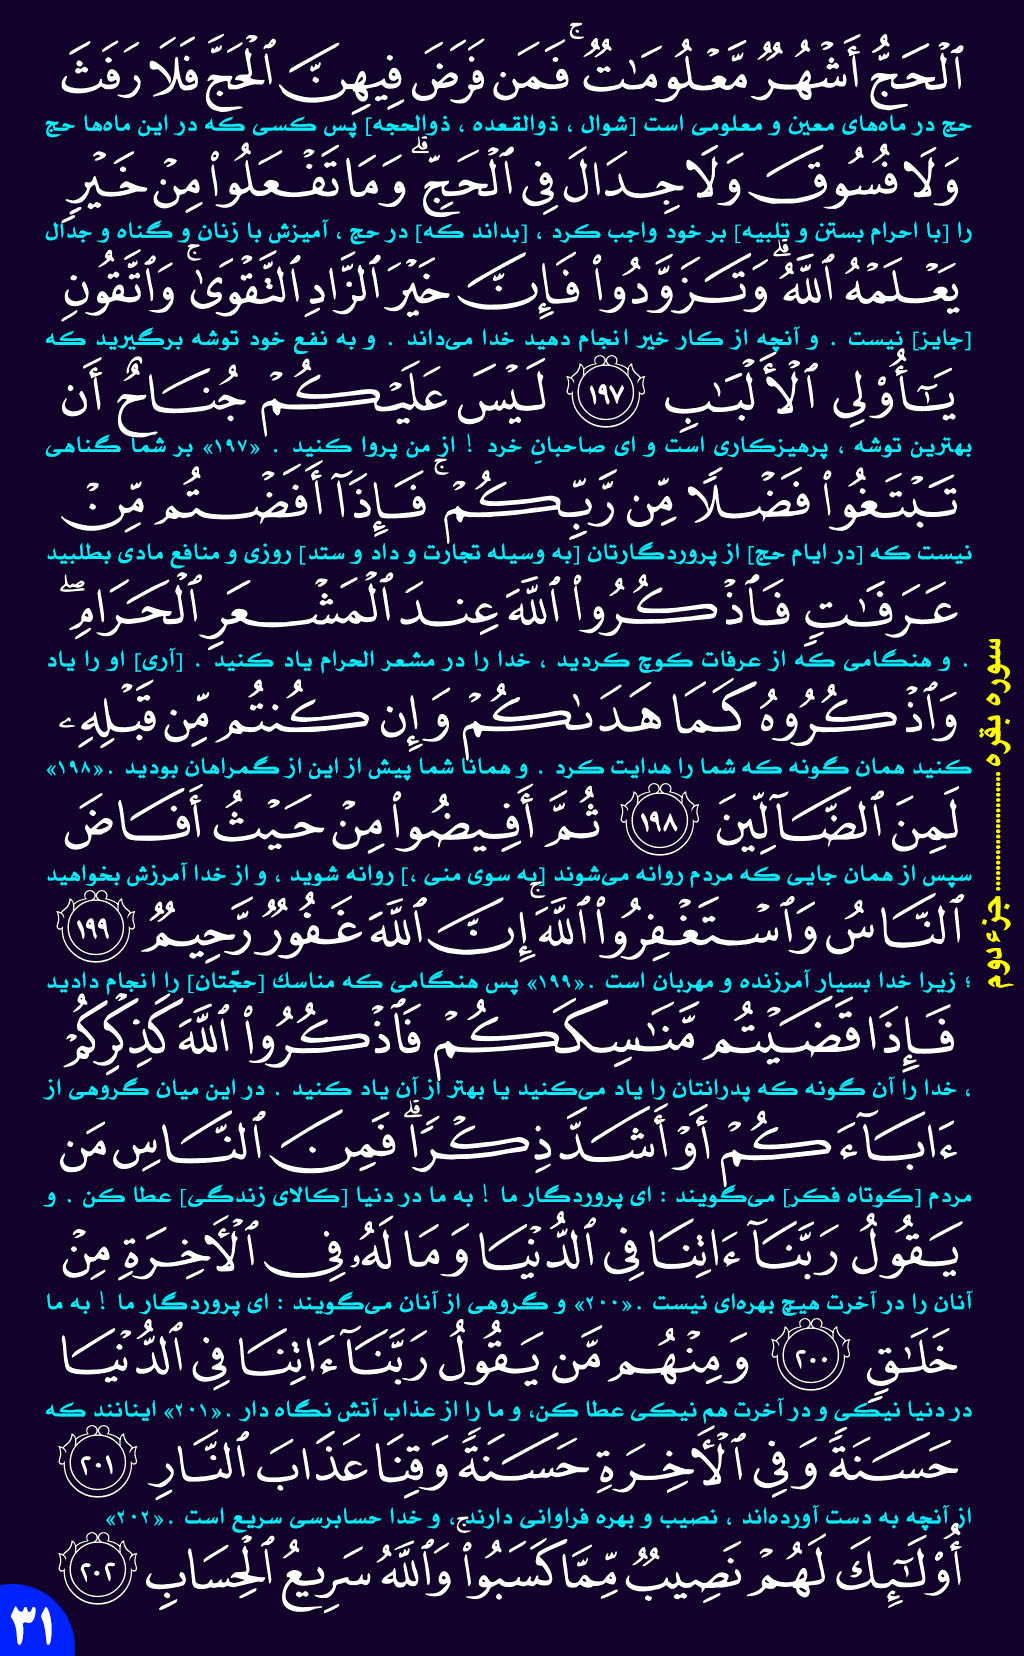 ٱلْحَجُّ أَشْهُرٌ مَّعْلُومَـٰتٌ ۚ فَمَن فَرَضَ فِيهِنَّ ٱلْحَجَّ فَلَا رَفَثَ
حج در ماه‌های معین و معلومی است [شوال ، ذوالقعده ، ذوالحجه] پس کسی که در این ماه‌ها حج
وَلَا فُسُوقَ وَلَا جِدَالَ فِى ٱلْحَجِّ ۗ وَمَا تَفْعَلُوا۟ مِنْ خَيْرٍ
را [با احرام بستن و تلبیه] بر خود واجب کرد ، [بداند که] در حج ، آمیزش با زنان و گناه و جدال
يَعْلَمْهُ ٱللَّهُ ۗ وَتَزَوَّدُوا۟ فَإِنَّ خَيْرَ ٱلزَّادِ ٱلتَّقْوَىٰ ۚ وَٱتَّقُونِ
[جایز] نیست . و آنچه از کار خیر انجام دهید خدا می‌داند . و به نفع خود توشه برگیرید که
يَـٰٓأُو۟لِى ٱلْأَلْبَـٰبِ ١٩٧ لَيْسَ عَلَيْكُمْ جُنَاحٌ أَن
بهترین توشه ، پرهیزکاری است و ای صاحبانِ خرد ! از من پروا کنید . «۱۹۷» بر شما گناهی
تَبْتَغُوا۟ فَضْلًا مِّن رَّبِّكُمْ ۚ فَإِذَآ أَفَضْتُم مِّنْ
نیست که [در ایام حج] از پروردگارتان [به وسیله تجارت و داد و ستد] روزی و منافع مادی بطلبید
عَرَفَـٰتٍ فَٱذْكُرُوا۟ ٱللَّهَ عِندَ ٱلْمَشْعَرِ ٱلْحَرَامِ ۖ
. و هنگامی که از عرفات کوچ کردید ، خدا را در مشعر الحرام یاد کنید . [آری] او را یاد
وَٱذْكُرُوهُ كَمَا هَدَىٰكُمْ وَإِن كُنتُم مِّن قَبْلِهِۦ
کنید همان گونه که شما را هدایت کرد . و همانا شما پیش از این از گمراهان بودید .«۱۹۸»
لَمِنَ ٱلضَّآلِّينَ ١٩٨ ثُمَّ أَفِيضُوا۟ مِنْ حَيْثُ أَفَاضَ
سپس از همان جایی که مردم روانه می‌شوند [به سوی منی ،] روانه شوید ، و از خدا آمرزش بخواهید
ٱلنَّاسُ وَٱسْتَغْفِرُوا۟ ٱللَّهَ ۚ إِنَّ ٱللَّهَ غَفُورٌ رَّحِيمٌ ١٩٩
؛ زیرا خدا بسیار آمرزنده و مهربان است .«۱۹۹» پس هنگامی که مناسك [حجّتان] را انجام دادید
فَإِذَا قَضَيْتُم مَّنَـٰسِكَكُمْ فَٱذْكُرُوا۟ ٱللَّهَ كَذِكْرِكُمْ
، خدا را آن گونه که پدرانتان را یاد می‌کنید یا بهتر از آن یاد کنید . در این میان گروهی از
ءَابَآءَكُمْ أَوْ أَشَدَّ ذِكْرًا ۗ فَمِنَ ٱلنَّاسِ مَن
مردم [کوتاه فکر] می‌گویند : ای پروردگار ما ! به ما در دنیا [کالای زندگی] عطا کن . و
يَقُولُ رَبَّنَآ ءَاتِنَا فِى ٱلدُّنْيَا وَمَا لَهُۥ فِى ٱلْأَخِرَةِ مِنْ
آنان را در آخرت هیچ بهره‌ای نیست .«۲۰۰» و گروهی از آنان می‌گویند : ای پروردگار ما ! به ما
خَلَـٰقٍ ٢٠٠ وَمِنْهُم مَّن يَقُولُ رَبَّنَآ ءَاتِنَا فِى ٱلدُّنْيَا
در دنیا نیکی و در آخرت هم نیکی عطا کن، و ما را از عذاب آتش نگاه دار .«۲۰۱» اینانند که
حَسَنَةً وَفِى ٱلْأَخِرَةِ حَسَنَةً وَقِنَا عَذَابَ ٱلنَّارِ ٢٠١
از آنچه به دست آورده‌اند ، نصیب و بهره فراوانی دارند ، و خدا حسابرسی سریع است .«۲۰۲»
أُو۟لَـٰٓئِكَ لَهُمْ نَصِيبٌ مِّمَّا كَسَبُوا۟ ۚ وَٱللَّهُ سَرِيعُ ٱلْحِسَابِ ٢٠٢
سوره بقره ........................ جزء دوم
۳۱